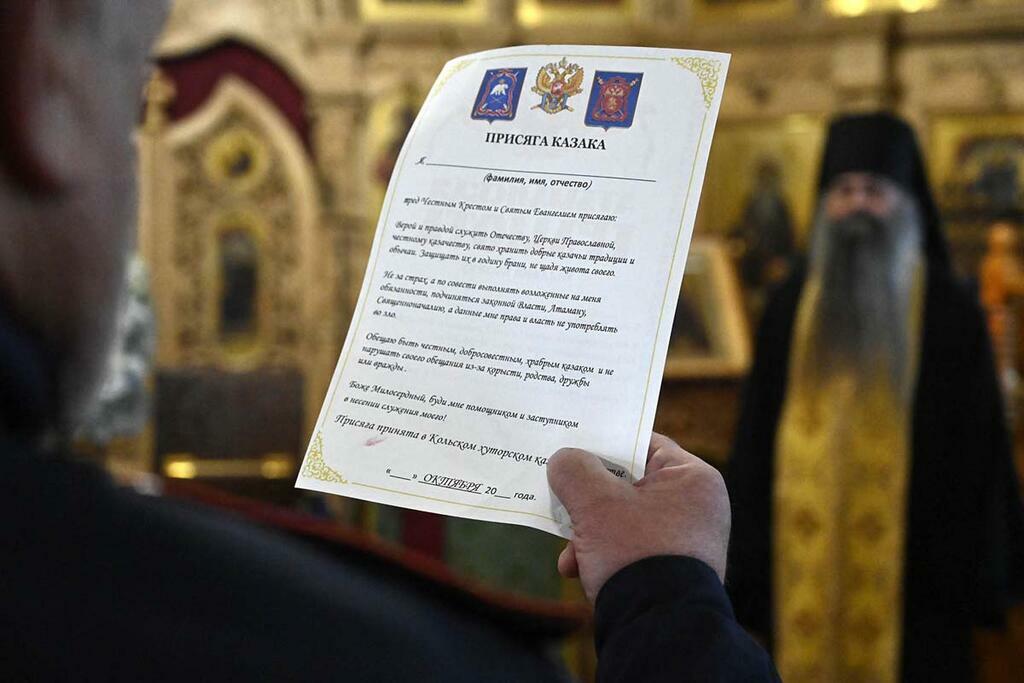 ПРИСЯГА КАЗАКА
Я,
(фамилия, имя, отчество)
пред Честным Крестом и Святым Евангелием присягаю:
Верой и правдой служить Отечеству, Церкви Православной,
честному казачеству, свято хранить добрые казачьи традиции и
обычаи. Защищать их в годину брани, не щадя живота своего.
Не за страх, а по совести выполнять возложенные на меня
обязанности, подчиняться законной Власти, Атаману,
Священноначалию, а данные мне права и власть не употреблять
во зло.
Обещаю быть честным, добросовестным, храбрым казаком и не
нарушать своего обещания из-за корысти, родства, дружбы
или вражды.
Боже Милосердный, буди мне помощником и заступником
в несении служения моего!
Присяга принята в Кольском хуторском
«___» ОКТЯБРЯ 20___ года.